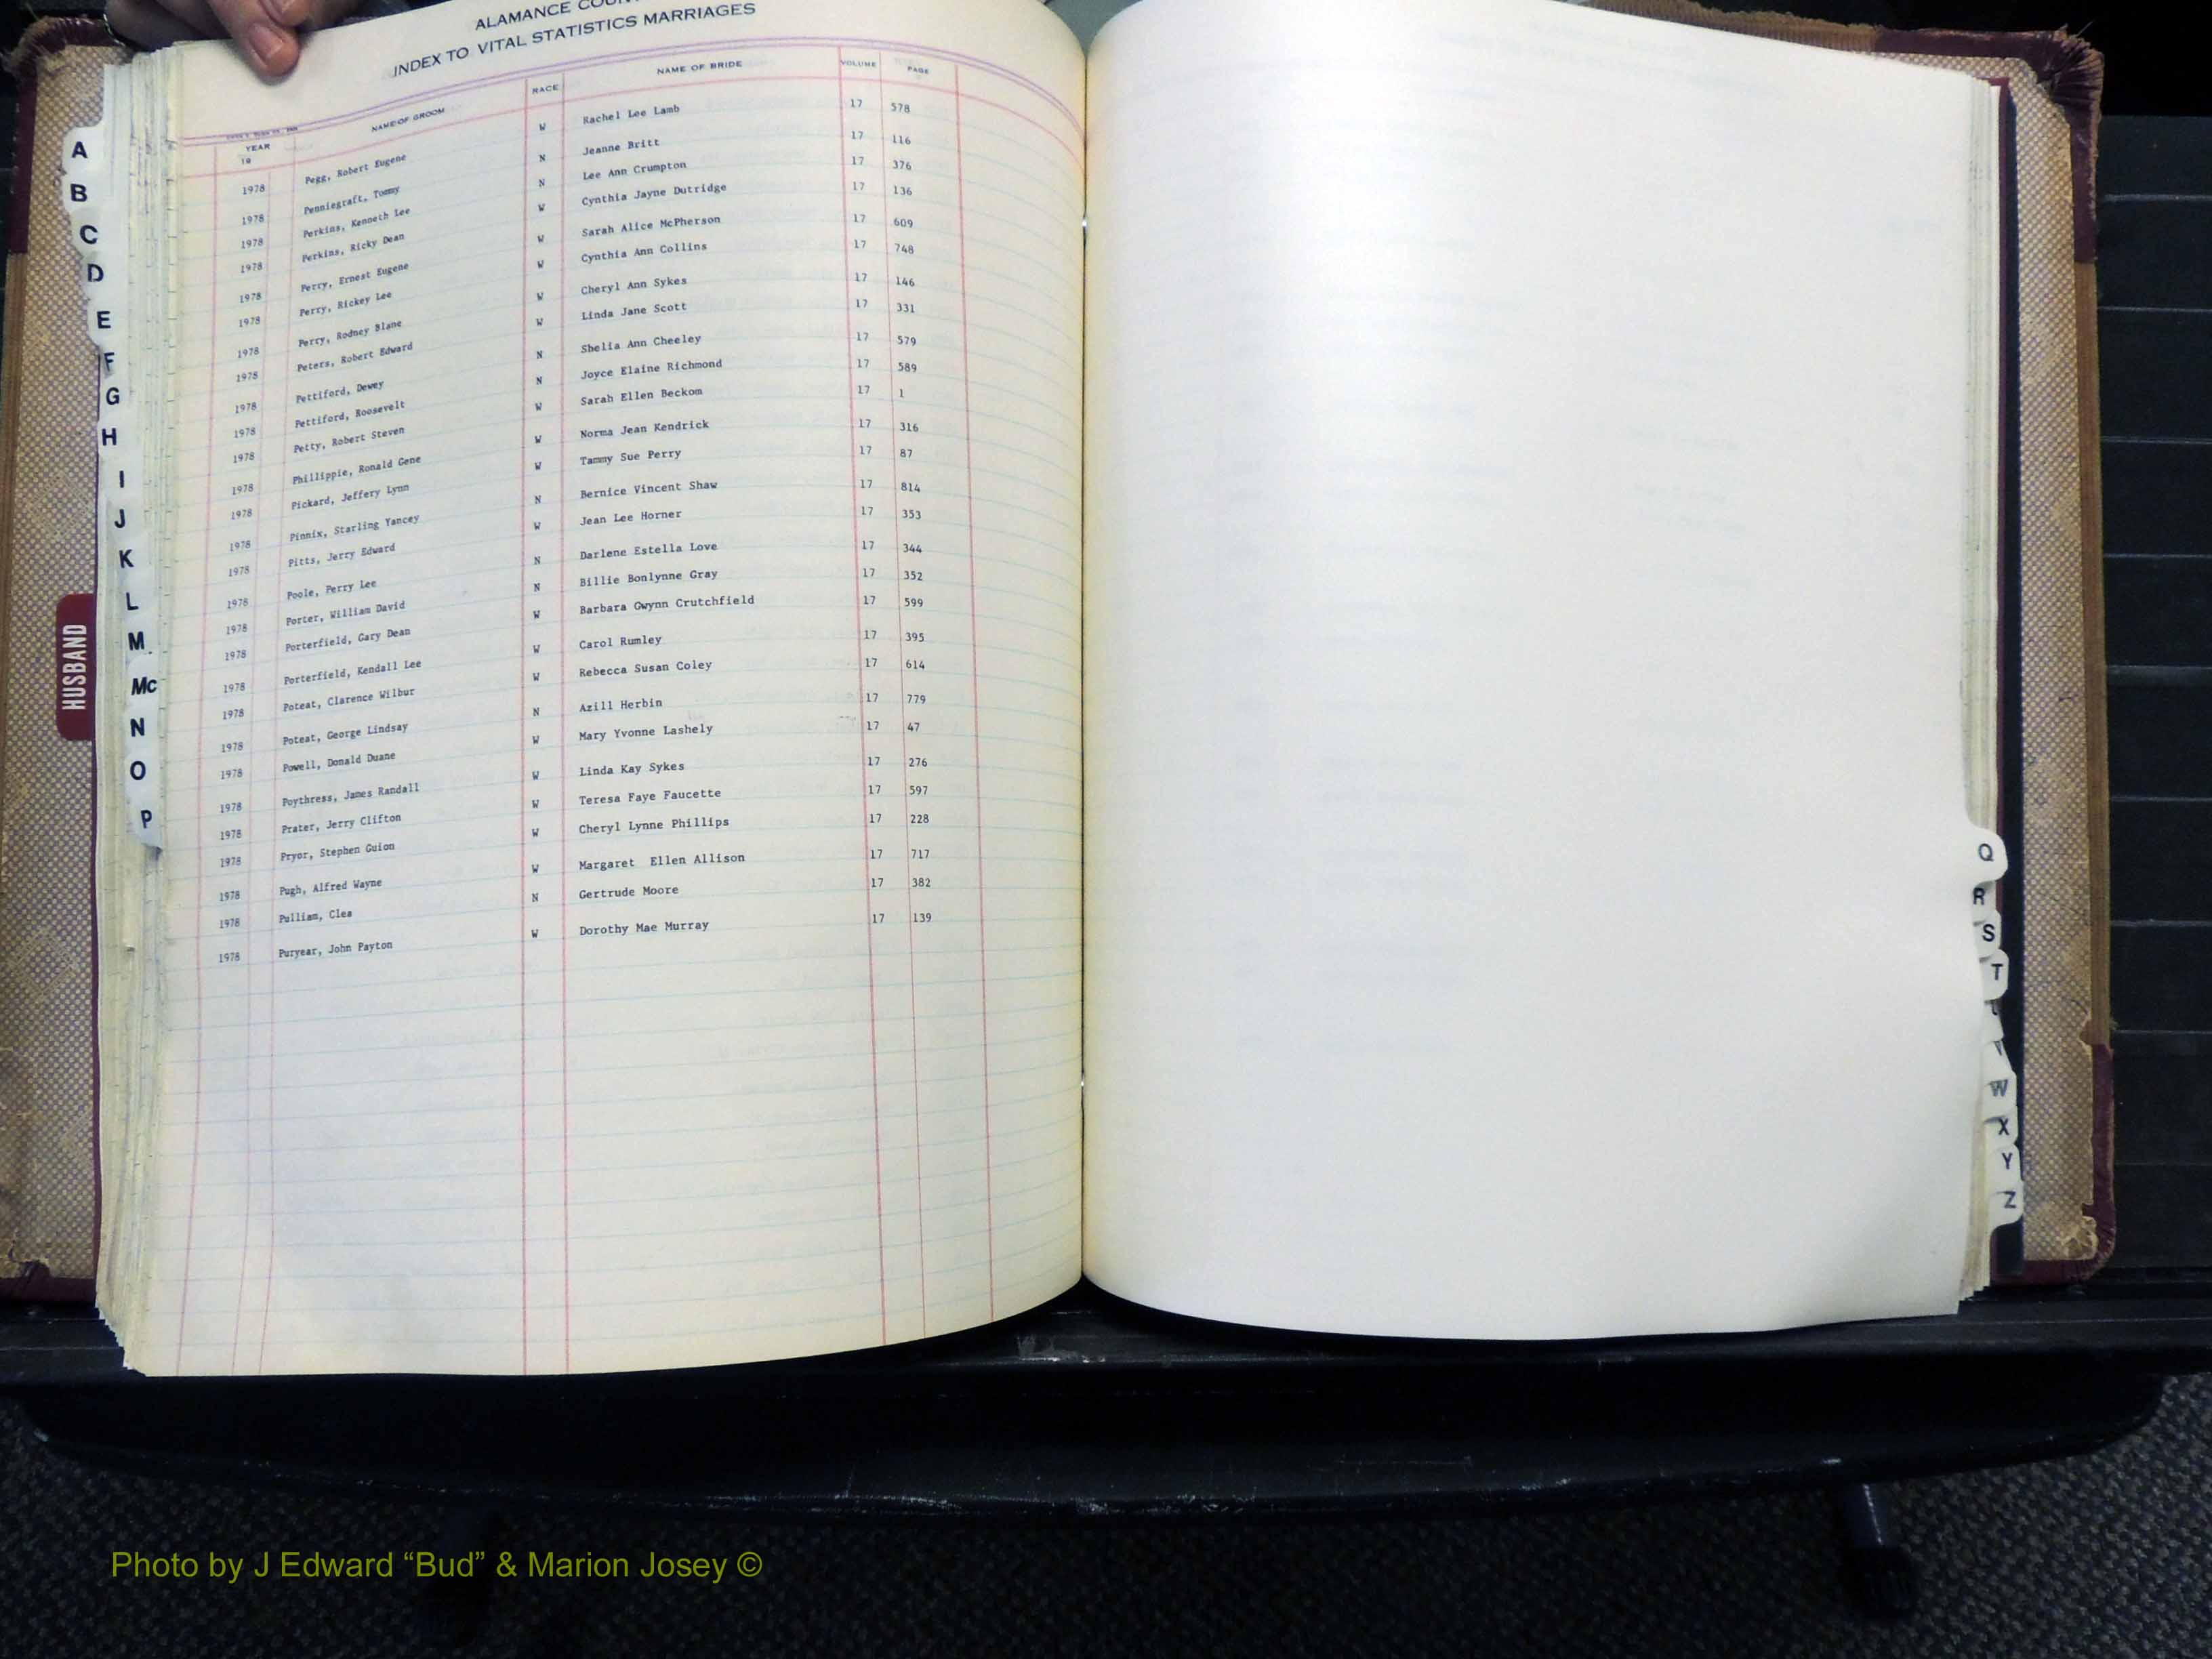 ALAMANCE
INDEX TO VITAL STATISTICS MARRIAGES
YEAR 19 NAME OF GROOM RACE NAME OF BRIDE VOLUME PAGE
1978 Pegg, Robert Eugene W Rachel Lee Lamb 17 578
1978 Penniegraft, Tommy N Jeanne Britt 17 116
1978 Perkins, Kenneth Lee N Lee Ann Crumpton 17 376
1978 Perkins, Ricky Dean W Cynthia Jayne Dutridge 17 136
1978 Perry, Ernest Eugene W Sarah Alice McPherson 17 609
1978 Perry, Rickey Lee W Cynthia Ann Collins 17 748
1978 Perry, Rodney Blane W Cheryl Ann Sykes 17 146
1978 Peters, Robert Edward W Linda Jane Scott 17 331
1978 Pettiford, Dewey N Shelia Ann Cheeley 17 579
1978 Pettiford, Roosevelt N Joyce Elaine Richmond 17 589
1978 Petty, Robert Steven W Sarah Ellen Beckom 17 1
1978 Phillippie, Ronald Gene W Norma Jean Kendrick 17 316
1978 Pickard, Jeffery Lynn W Tammy Sue Perry 17 87
1978 Pinnix, Starling Yancey N Bernice Vincent Shaw 17 814
1978 Pitts, Jerry Edward W Jean Lee Horner 17 353
1978 Poole, Perry Lee N Darlene Estella Love 17 344
1978 Porter, William David N Billie Bonlynne Gray 17 352
1978 Porterfield, Gary Dean W Barbara Gwynn Crutchfield 17 599
1978 Porterfield, Kendall Lee W Carol Rumley 17 395
1978 Poteat, Clarence Wilbur W Rebecca Susan Coley 17 614
1978 Poteat, George Lindsay N Azill Herbin 17 779
1978 Powell, Donald Duane W Mary Yvonne Lashely 17 47
1978 Poythress, James Randall W Linda Kay Sykes 17 276
1978 Prater, Jerry Clifton W Teresa Faye Faucette 17 597
1978 Pryor, Stephen Guion W Cheryl Lynne Phillips 17 228
1978 Pugh, Alfred Wayne W Margaret Ellen Allison 17 717
1978 Pulliam, Clea N Gertrude Moore 17 382
1978 Puryear, John Payton W Dorothy Mae Murray 17 139
A
B
C
D
E
F
G
H
I
J
K
L
M
Mc
N
O
P
HUSBAND
Q
R
S
T
W
X
Y
Z
Photo by J Edward “Bud” & Marion Josey ©